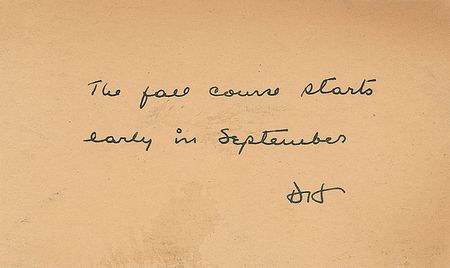 The fall course starts
early in September
DH